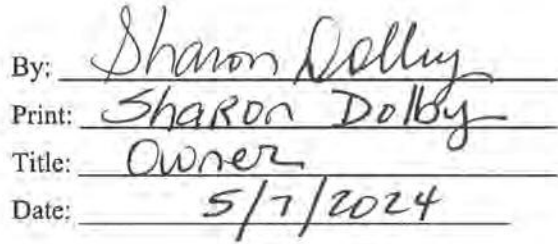 By: Sharon Dolby
Print: Sharon Dolby
Title: Owner
Date: 5/7/2024